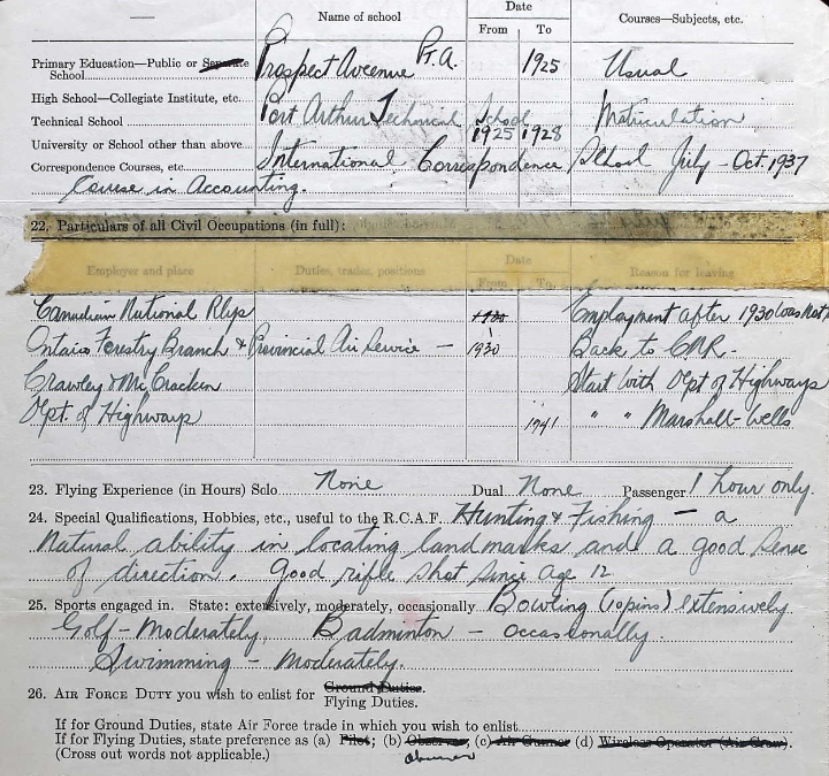 Name of school
Date
From To
Courses—Subjects, etc.
Primary Education—Public or Separate School Prospect Avenue Pt. A. 1925 Usual
High School—Collegiate Institute, etc.
Technical School Port Arthur Technical School 1925 1928 Matriculation
University or School other than above
Correspondence Courses, etc. International Correspondence School July - Oct. 1937
Course in Accounting.
22. Particulars of all Civil Occupations (in full):
Date
Employer and place Duties, trades, positions From To Reason for leaving
Canadian National Rlys 1930 Employment after 1930 was not
Ontario Forestry Branch & Provincial Air Service — 1930 Back to CNR.
Crawley & McCracken Start with Dpt of Highways
Dpt. of Highways 1941 " " Marshall-Wells
23. Flying Experience (in Hours) Solo None Dual None Passenger 1 hour only.
24. Special Qualifications, Hobbies, etc., useful to the R.C.A.F. Hunting & Fishing — a
natural ability in locating landmarks and a good sense
of direction. Good rifle shot since age 12
25. Sports engaged in. State: extensively, moderately, occasionally Bowling (10 pins) extensively
Golf - Moderately. Badminton - occasionally.
Swimming - Moderately.
26. AIR FORCE DUTY you wish to enlist for Ground Duties.
Flying Duties.
If for Ground Duties, state Air Force trade in which you wish to enlist
If for Flying Duties, state preference as (a) Pilot; (b) Observer; (c) Air Gunner (d) Wireless Operator (Air Crew).
(Cross out words not applicable.) observer